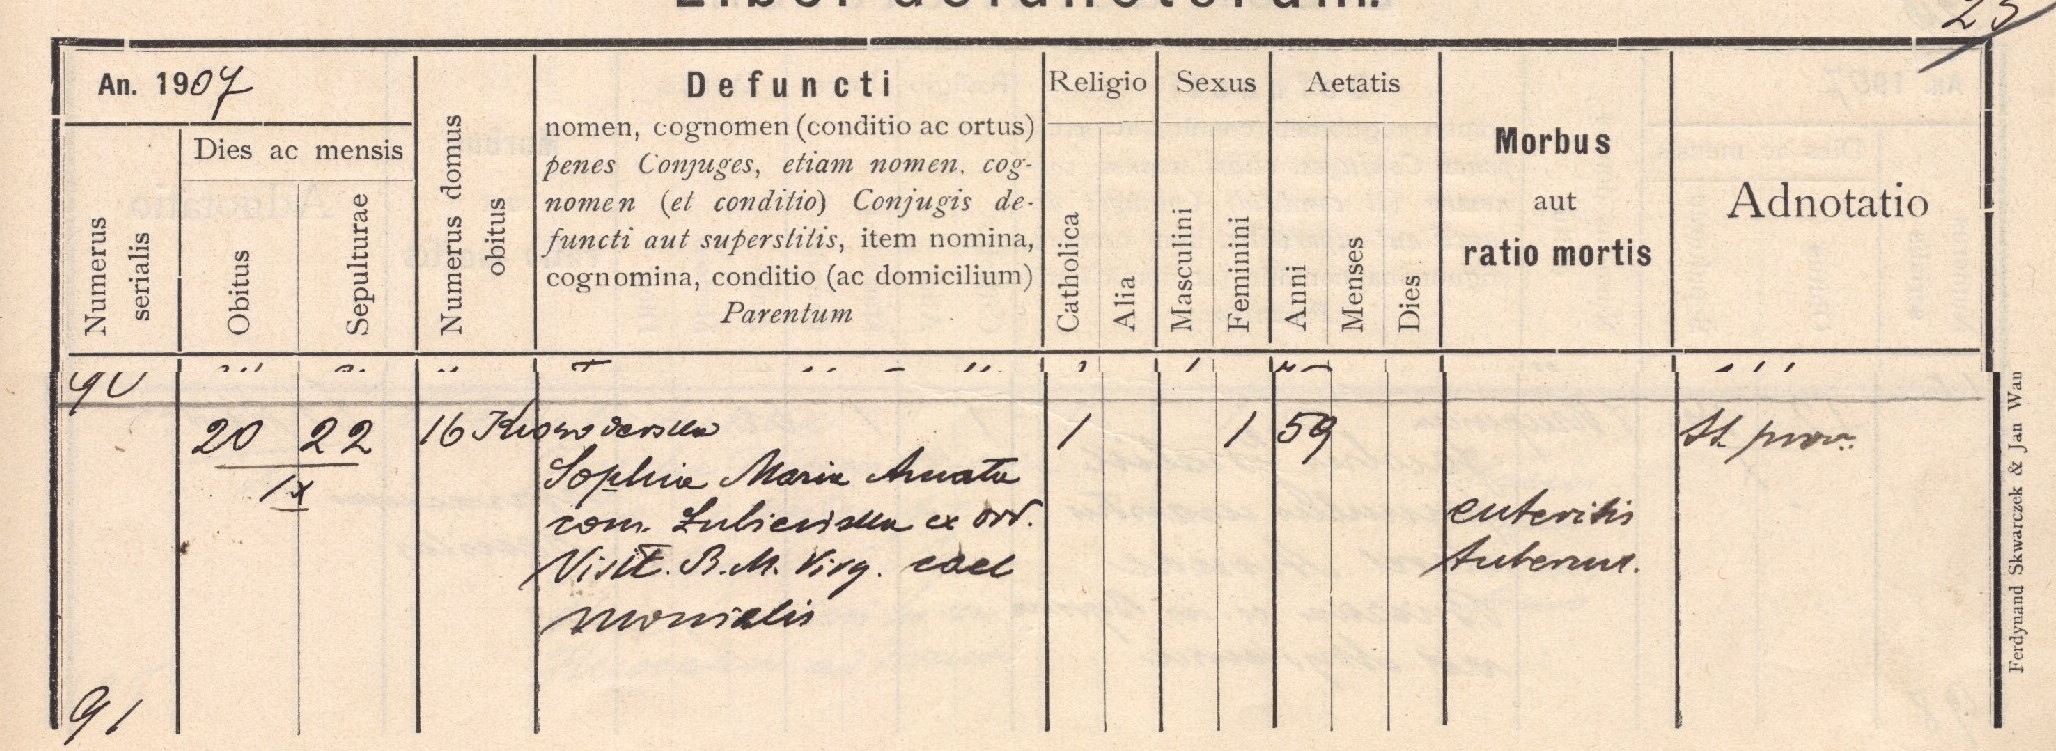 Liber defunctorum.
25
An. 1907
Numerus serialis
Dies ac mensis
Obitus
Sepulturae
Numerus domus obitus
Defuncti
nomen, cognomen (conditio ac ortus)
penes Conjuges, etiam nomen, cog-
nomen (et conditio) Conjugis de-
functi aut superstitis, item nomina,
cognomina, conditio (ac domicilium)
Parentum
Religio
Catholica
Alia
Sexus
Masculini
Feminini
Aetatis
Anni
Menses
Dies
Morbus
aut
ratio mortis
Adnotatio
90
20 22 16 Krowoderska 1 1 59 St. prov.
IX
Sophia Maria Amata
com. Łubieńska ex ord.
Visit. B. M. Virg.
monialis
enteritis
tubercul.
91
Ferdynand Skwarczek & Jan Wan